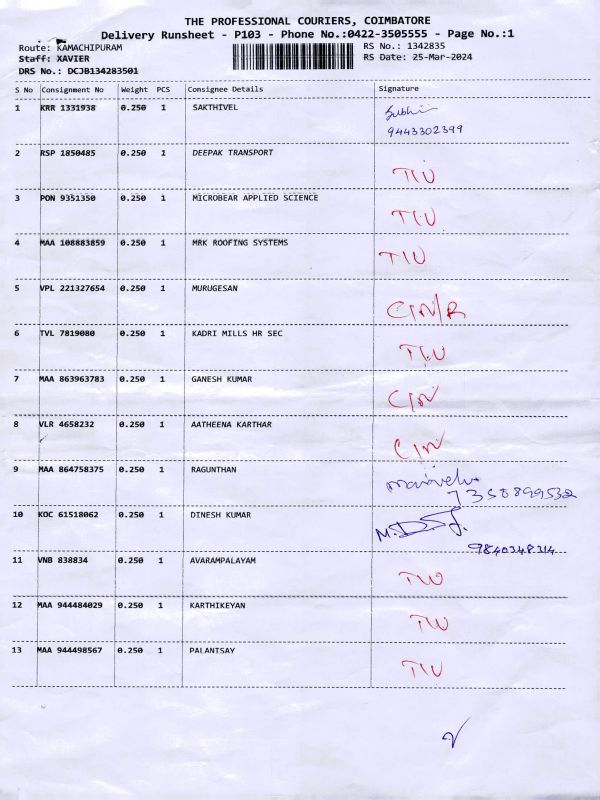 THE PROFESSIONAL COURIERS, COIMBATORE
Delivery Runsheet - P103 - Phone No.:0422-3505555 - Page No.:1
Route: KAMACHIPURAM RS No.: 1342835
Staff: XAVIER RS Date: 25-Mar-2024
DRS No.: DCJB134283501
S No Consignment No Weight PCS Consignee Details Signature
1 KRR 1331938 0.250 1 SAKTHIVEL
9443302399
2 RSP 1850485 0.250 1 DEEPAK TRANSPORT
3 PON 9351350 0.250 1 MICROBEAR APPLIED SCIENCE
4 MAA 108883859 0.250 1 MRK ROOFING SYSTEMS
5 VPL 221327654 0.250 1 MURUGESAN
6 TVL 7819080 0.250 1 KADRI MILLS HR SEC
7 MAA 863963783 0.250 1 GANESH KUMAR
8 VLR 4658232 0.250 1 AATHEENA KARTHAR
9 MAA 864758375 0.250 1 RAGUNTHAN
10 KOC 61518062 0.250 1 DINESH KUMAR
11 VNB 838834 0.250 1 AVARAMPALAYAM
12 MAA 944484029 0.250 1 KARTHIKEYAN
13 MAA 944498567 0.250 1 PALANTSAY